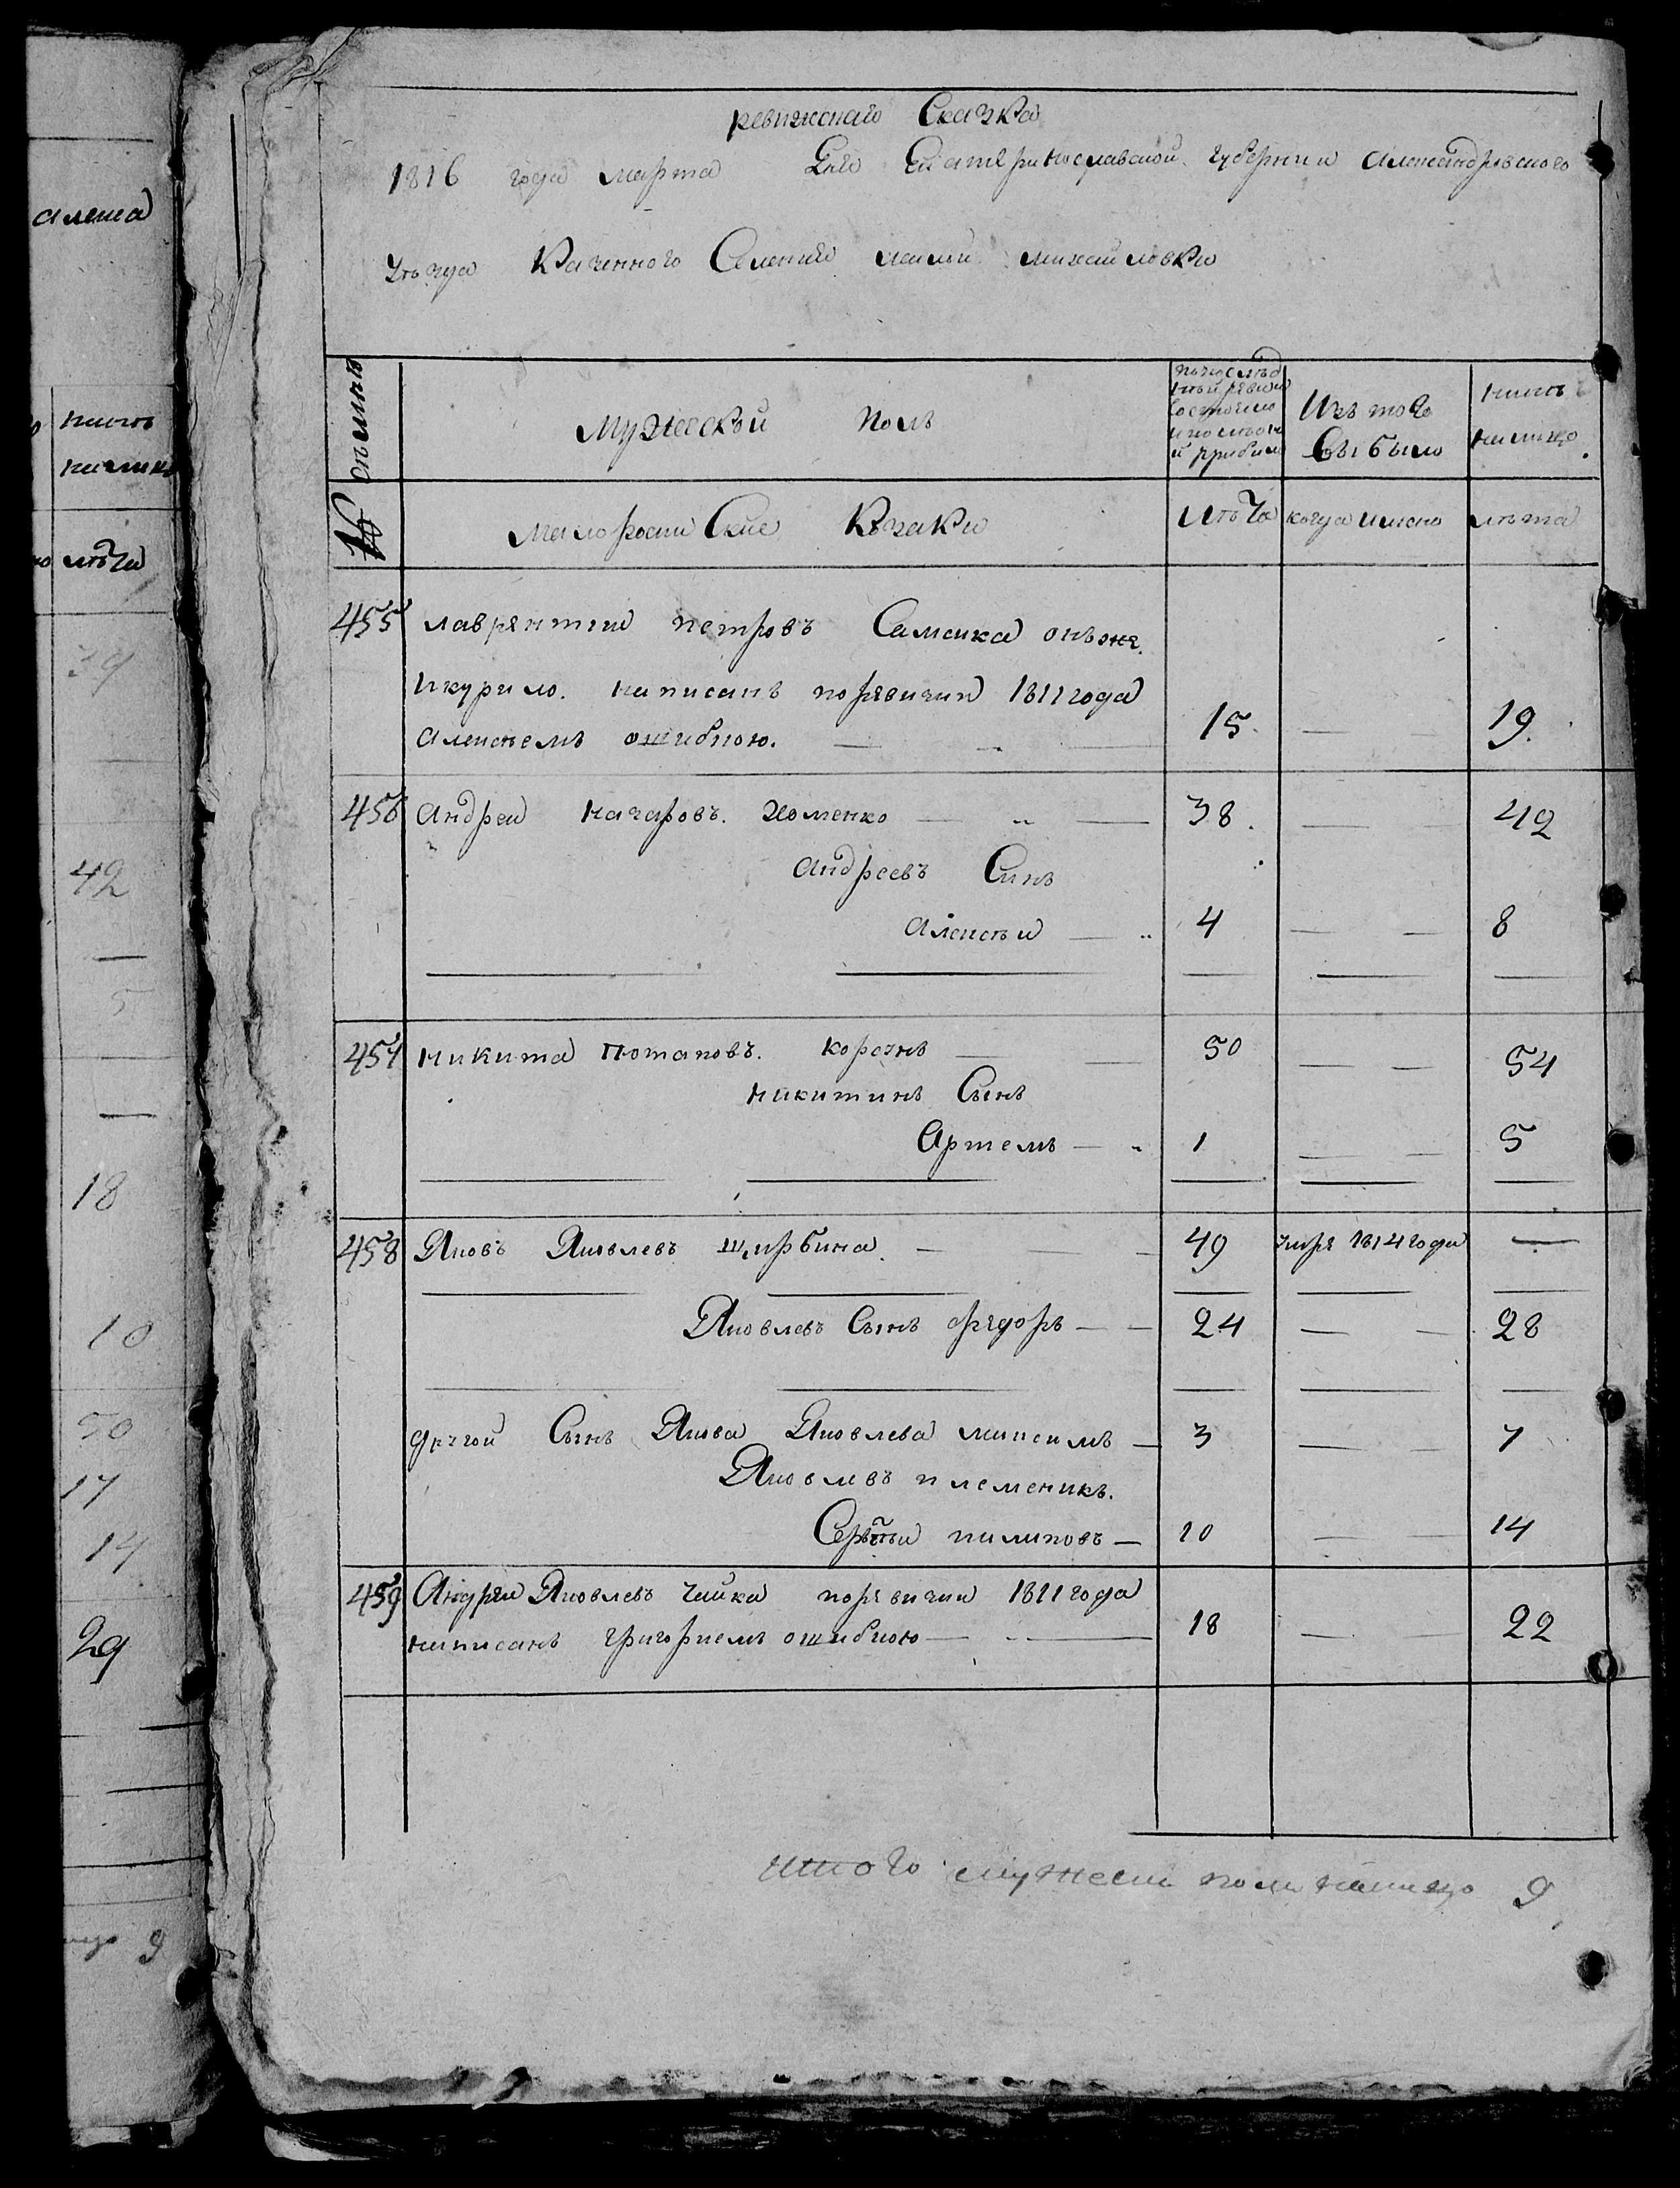 ревижская Сказка
1816 года марта Дня Екатеринославской губернии Александровского
уѣзда Казенного Селения малой михайловки
семьи
Мужескъй Полъ
по последней ревизии состояло и после оной прибыло
Изъ того выбыло
нынѣ налицо
№
малороссийские Козаки
лѣта
когда именно
лѣта
455 лаврентий петровъ Самойка онъ же
шкурило. написанъ по ревизии 1811 года
алексеемъ ошибкою. 15 — 19
456 андрей назаровъ хоменко — 38 — 42
андреевъ Синъ
алексѣй — 4 — 8
457 никита потаповъ. корсунъ — 50 — 54
никитинъ Сынъ
Артемъ — 1 — 5
458 Яковъ Яковлевъ щирбина — 49 умре 1814 года —
Яковлевъ Сынъ федоръ — 24 — 28
другой Сынъ Якова Яковлева максимъ — 3 — 7
Яковлевъ племеникъ.
Сергѣй пилиповъ — 10 — 14
459 Андрей Яковлевъ чайка по ревизии 1811 года
написанъ григориемъ ошибкою — 18 — 22
итого мужеска пола налицо 9
алета
нынѣ
налицо
лѣта
39
42
—
5
—
18
10
50
17
14
29
лицо 9